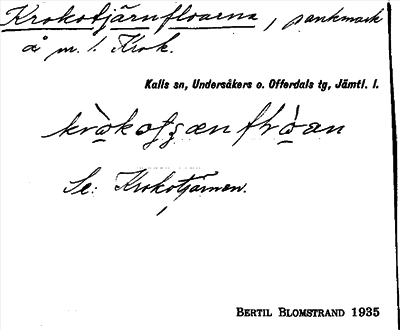 Krokotjärnfloarna, sankmark
å m. l. Krok.
Kalls sn, Undersåkers o. Offerdals tg, Jämtl. l.
Se: Krokotjärnen.
BERTIL BLOMSTRAND 1935